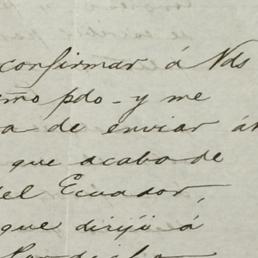 confirmar á Vds
pdo - y me
de enviar á
que acaba de
del Ecuador,
que dirijí á